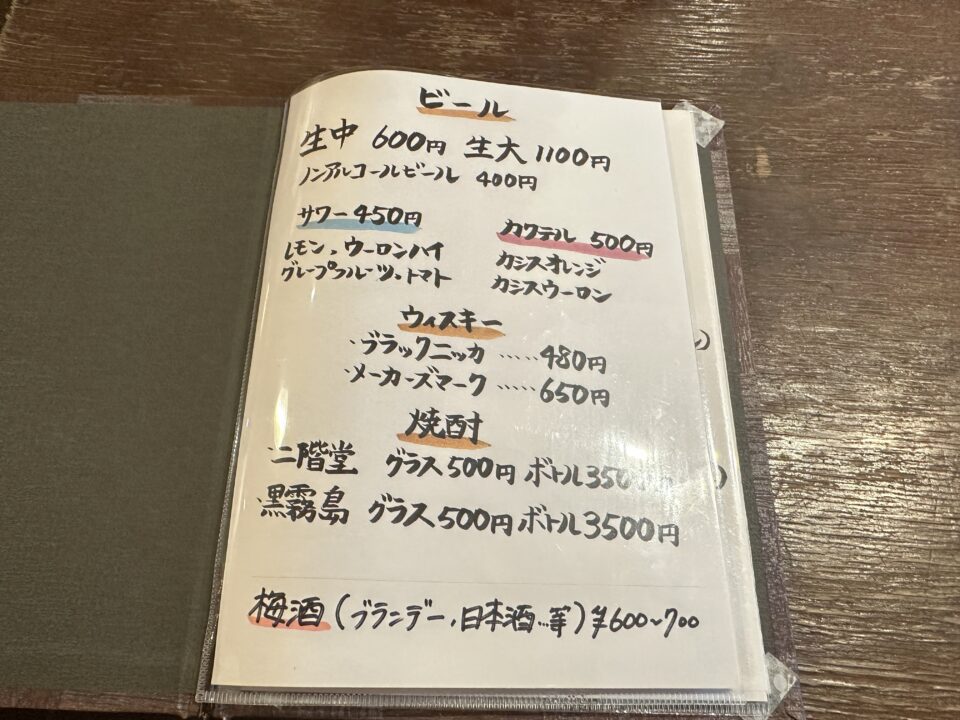 ビール
生中 600円 生大 1100円
ノンアルコールビール 400円
サワー 450円
レモン、ウーロンハイ
グレープフルーツ、トマト
カクテル 500円
カシスオレンジ
カシスウーロン
ウィスキー
・ブラックニッカ ‥‥‥ 480円
・メーカーズマーク ‥‥‥ 650円
焼酎
・二階堂 グラス500円 ボトル350
・黒霧島 グラス500円 ボトル3500円
梅酒 (ブランデー、日本酒…等) ¥600~700